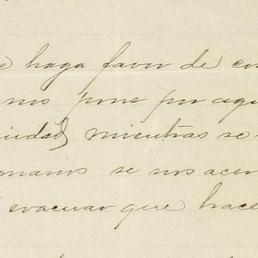 e haga favor de con
mos pone por aqui
iudad, mientras se
manos se nos acer
evacuar que hace